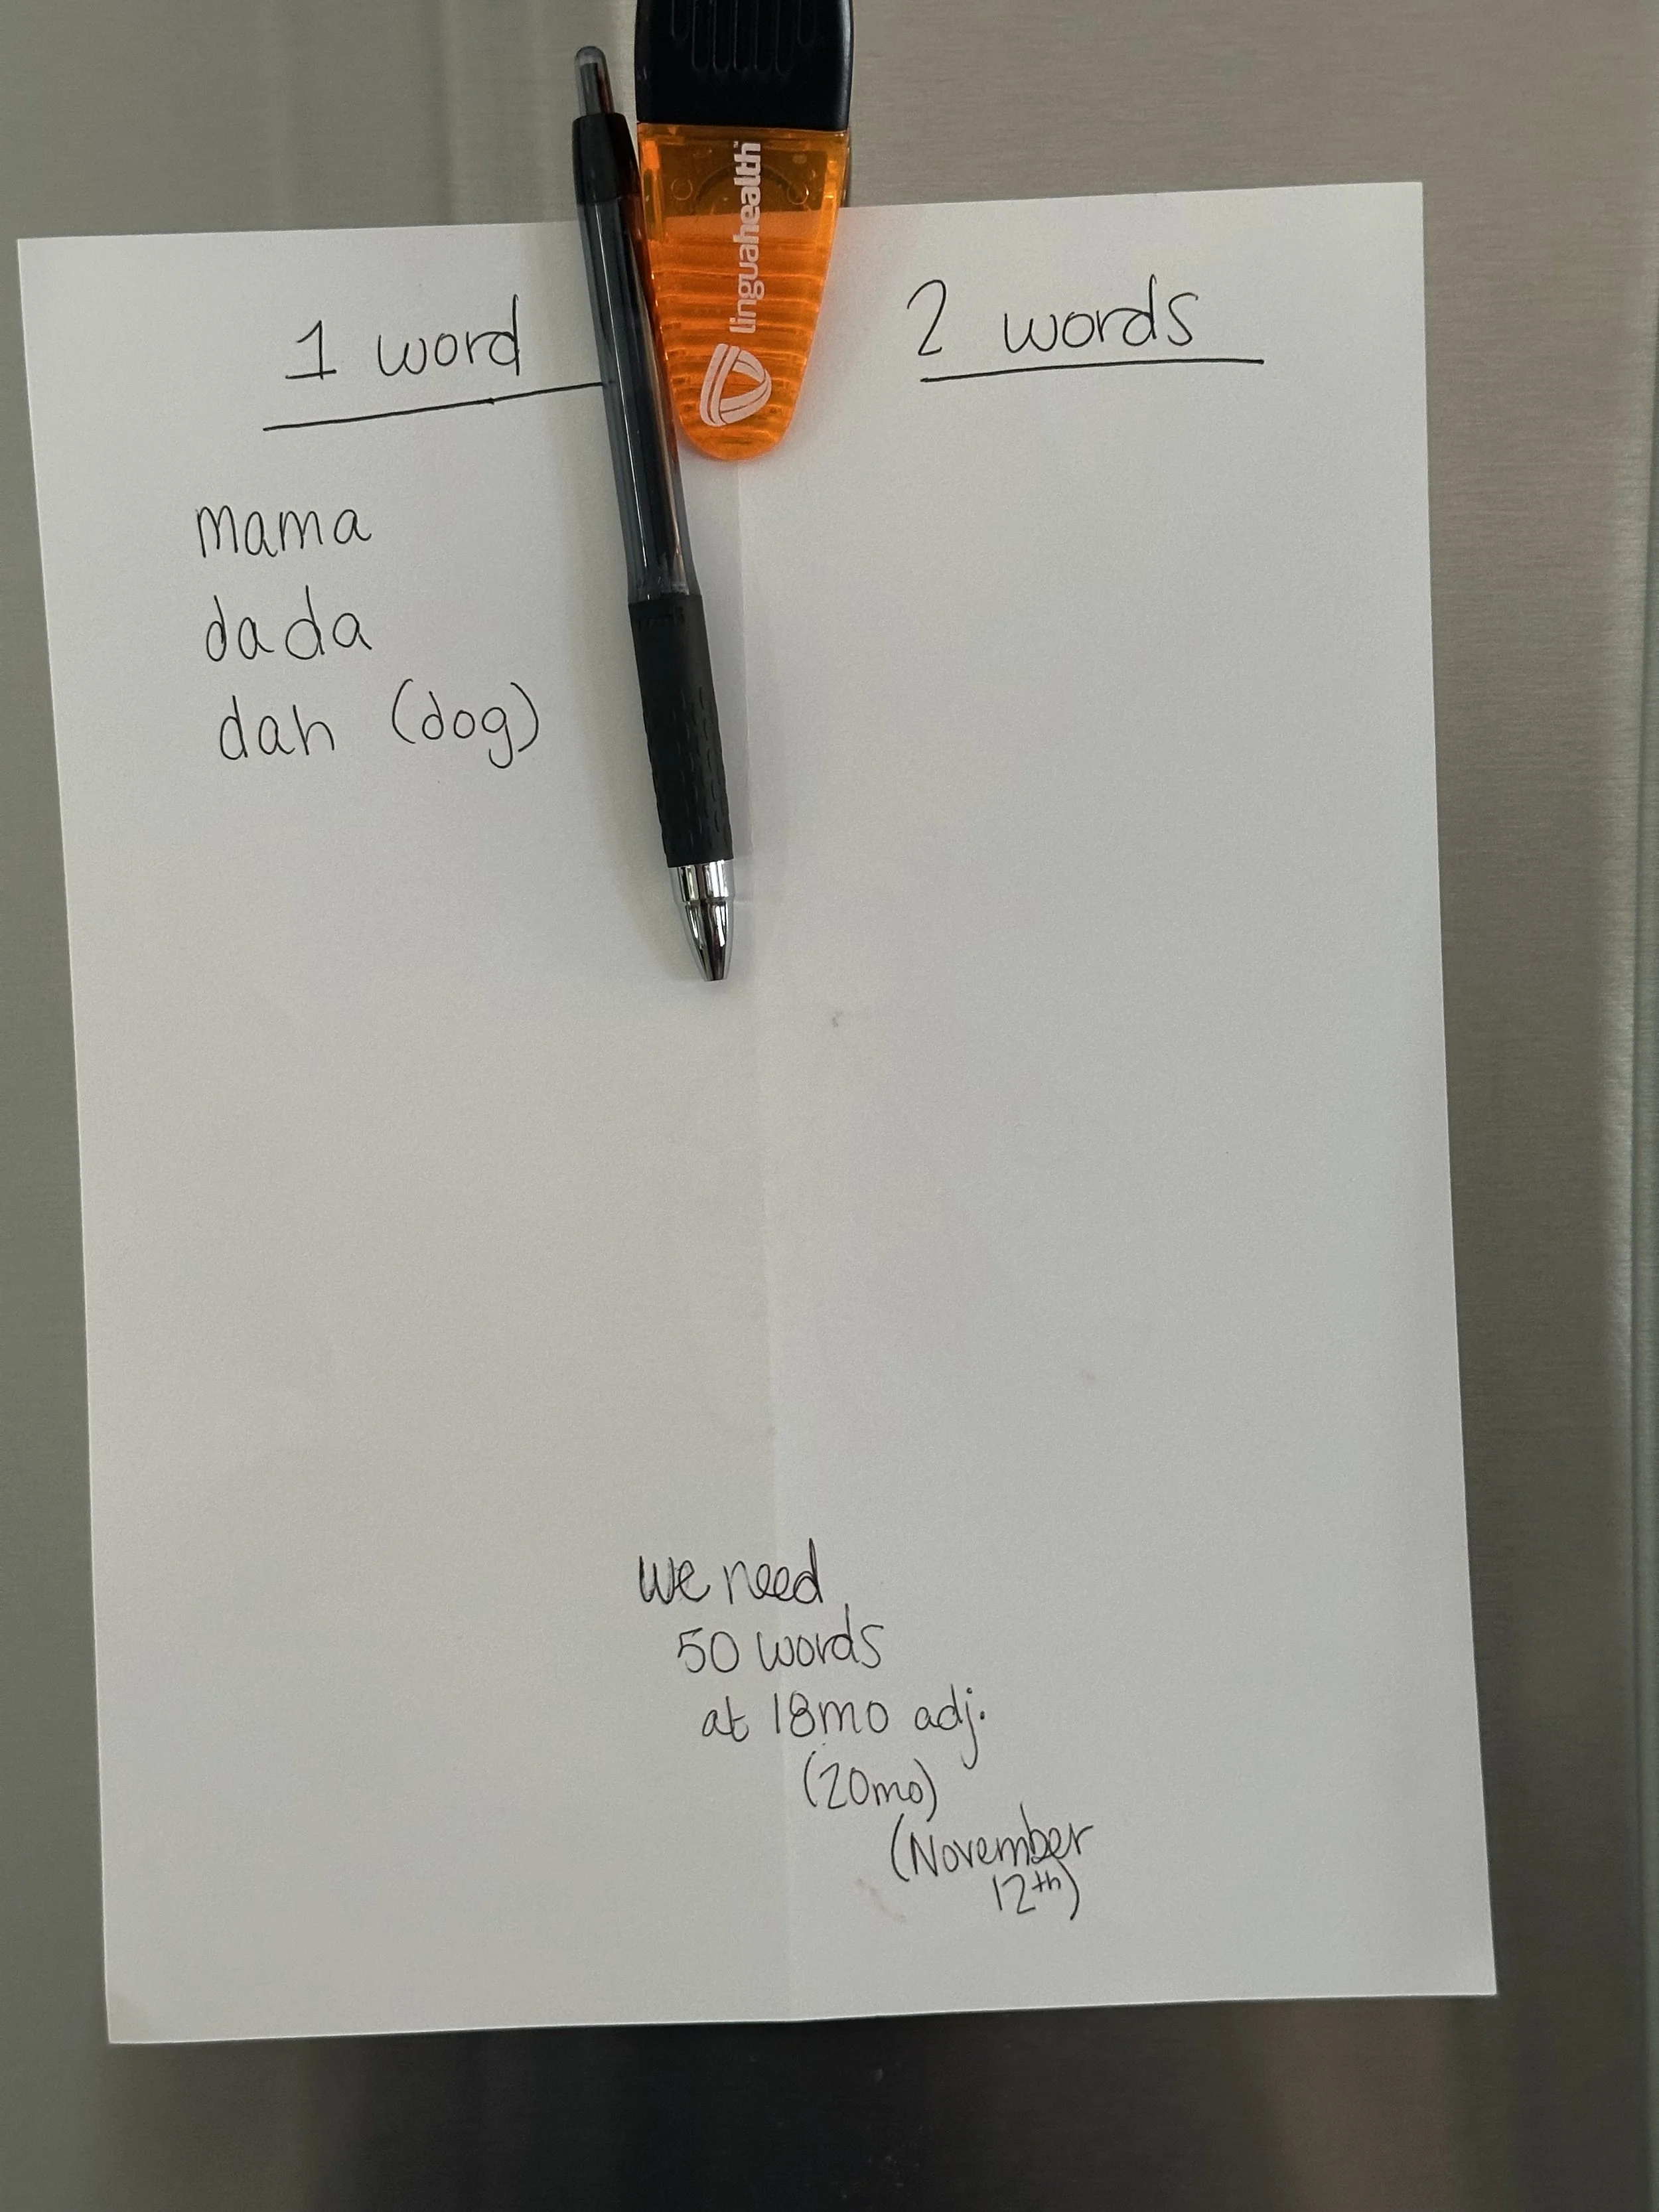 linguahealth™
1 word
2 words
mama
dada
dah (dog)
we need
50 words
at 18mo adj.
(20mo)
(November
12th)